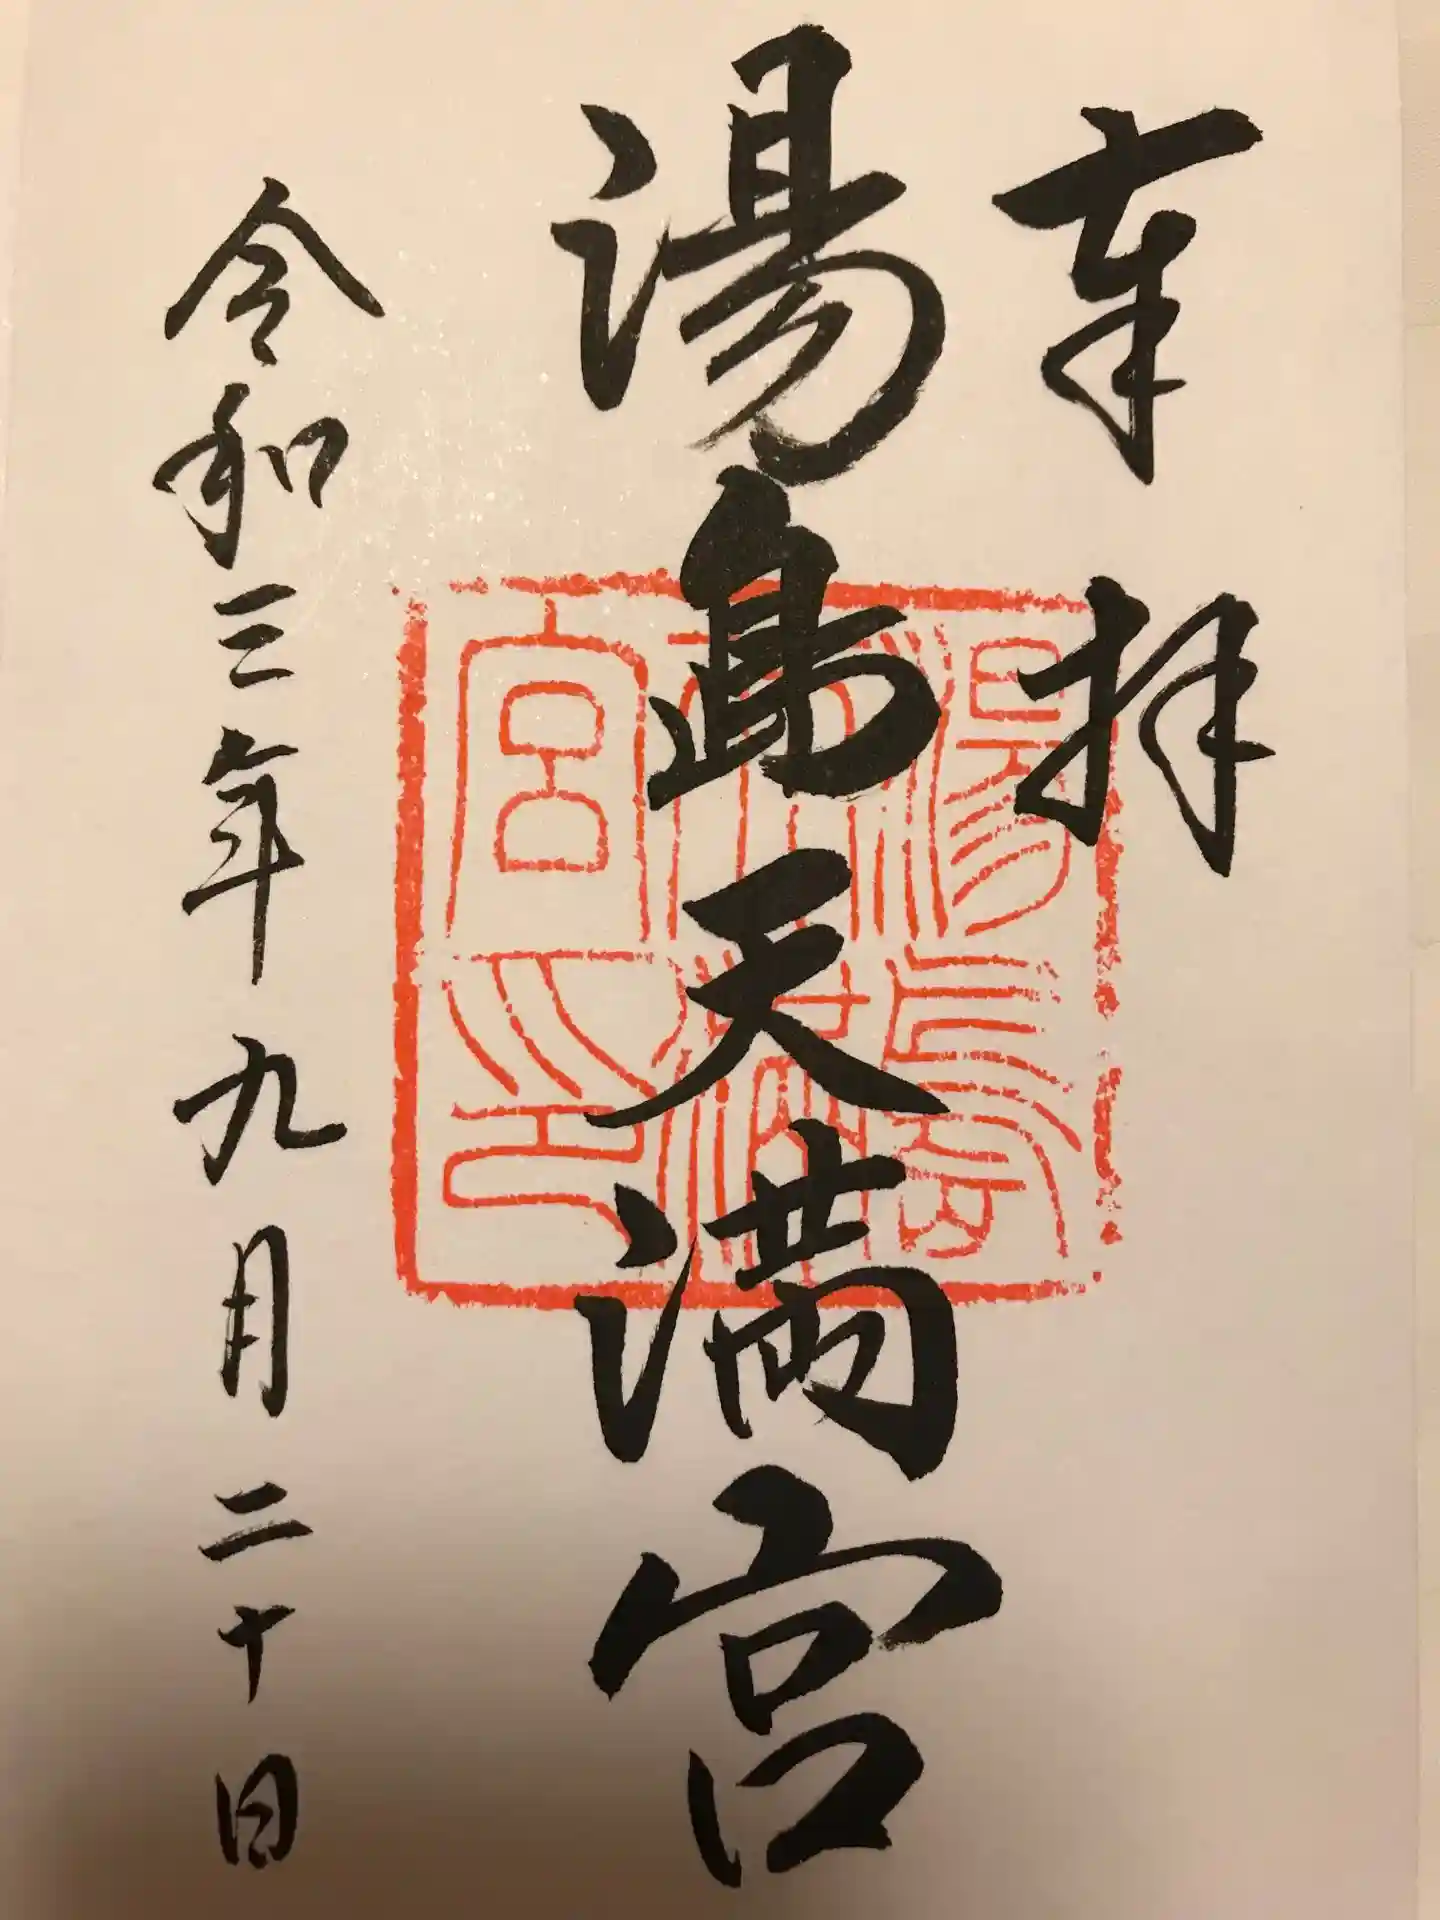 奉拝
湯島天満宮
令和三年九月二十日
湯島天満宮之印